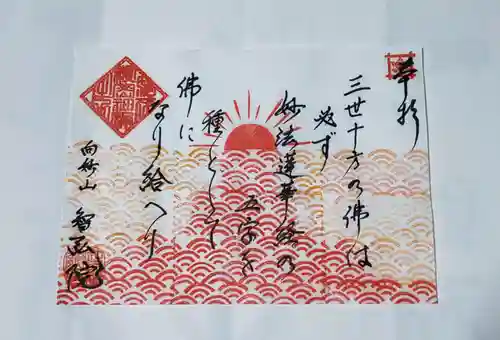 奉拝
三世十方の佛は
必ず
妙法蓮華経の
五字を
種として
佛に
なり給へり
向妙山
智弘院